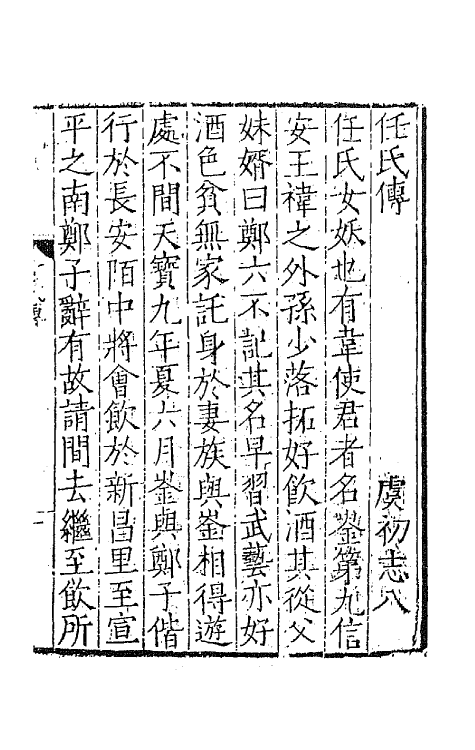 任氏傳　虞初志八
任氏女妖也有韋使君者名崟第九信
安王禕之外孫少落拓好飲酒其從父
妹婿曰鄭六不記其名早習武藝亦好
酒色貧無家託身於妻族與崟相得遊
處不間天寶九年夏六月崟與鄭子偕
行於長安陌中將會飲於新昌里至宣
平之南鄭子辭有故請間去繼至飲所